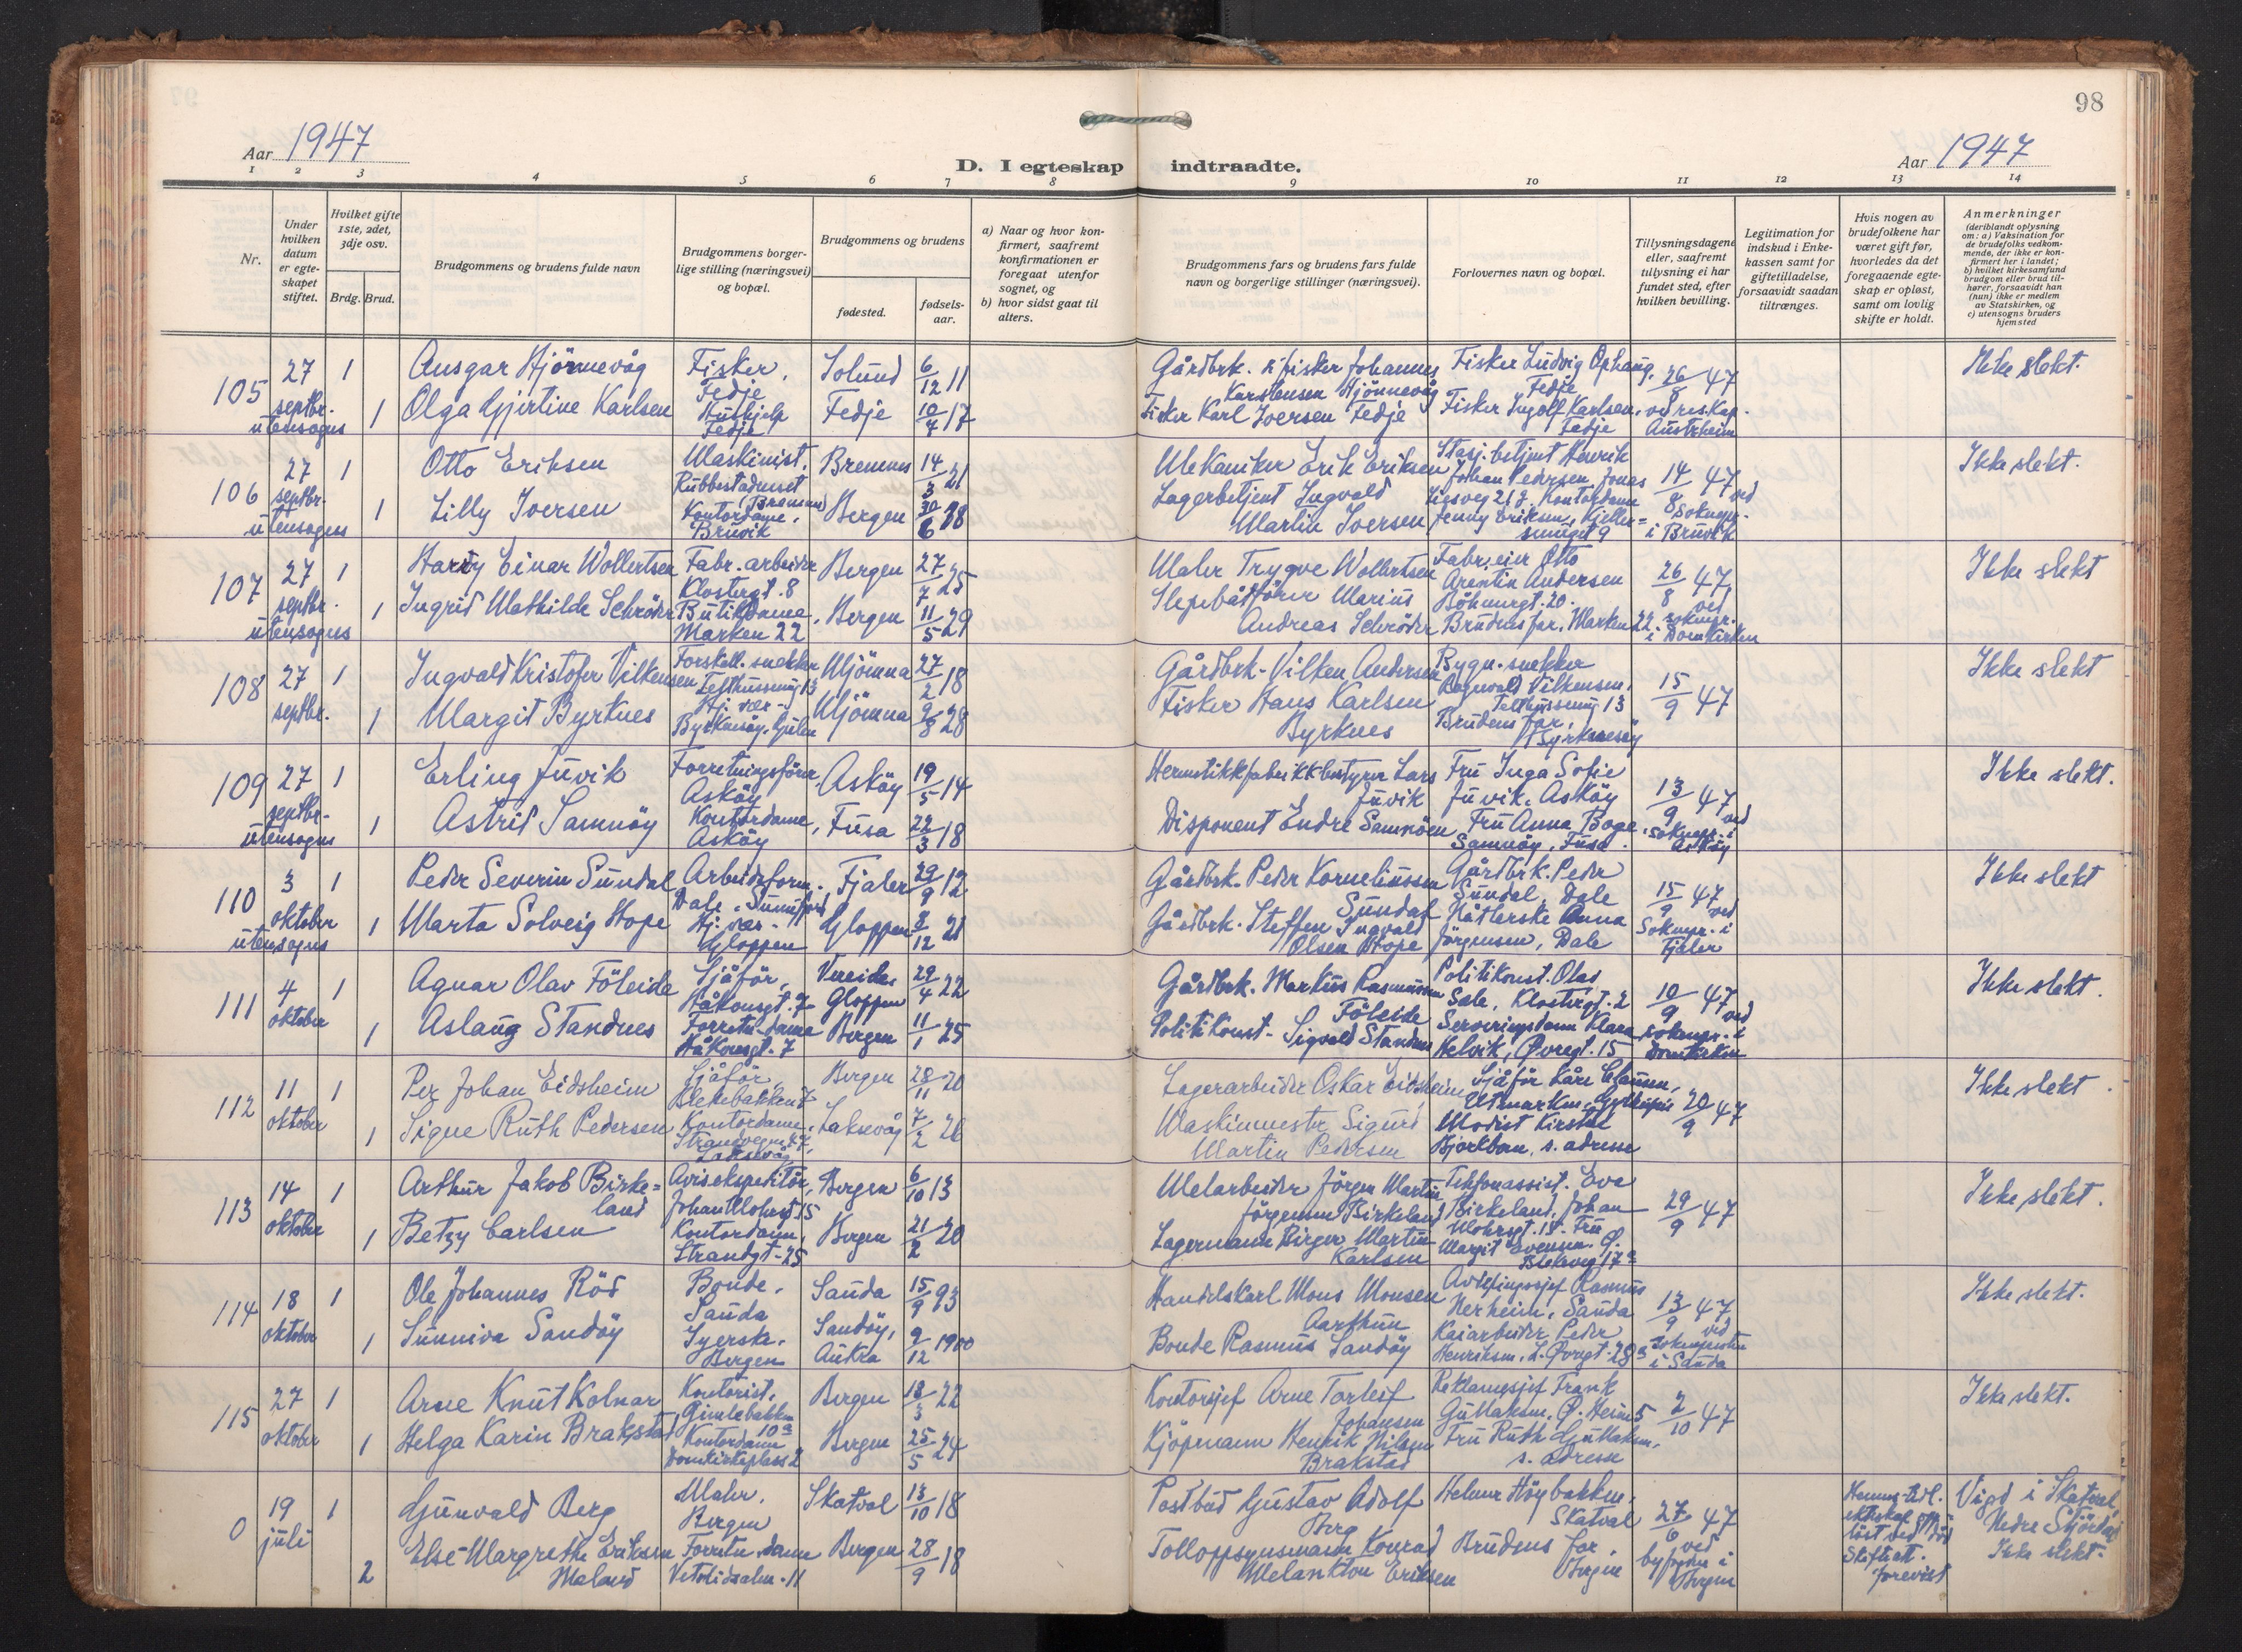 98
Aar 1947
D. I egteskap indtraadte.
Aar 1947
1 2 3 4 5 6 7 8 9 10 11 12 13 14
Nr.
Under hvilken datum er egteskapet stiftet.
Hvilket gifte 1ste, 2det, 3dje osv.
Brdg. Brud.
Brudgommens og brudens fulde navn
Brudgommens borgerlige stilling (næringsvei) og bopæl.
Brudgommens og brudens
fødested.
fødsels-aar.
a) Naar og hvor konfirmert, saafremt konfirmationen er foregaat utenfor sognet, og
b) hvor sidst gaat til alters.
Brudgommens fars og brudens fars fulde navn og borgerlige stillinger (næringsvei).
Forlovernes navn og bopæl.
Tillysningsdagene eller, saafremt tilysning ei har fundet sted, efter hvilken bevilling.
Legitimation for indskud i Enkekassen samt for giftetilladelse, forsaavidt saadan tiltrænges.
Hvis nogen av brudefolkene har været gift før, hvorledes da det foregaaende egteskap er opløst, samt om lovlig skifte er holdt.
Anmerkninger
(deriblandt oplysning om: a) Vaksination for de brudefolks vedkommende, der ikke er konfirmert her i landet; b) hvilket kirkesamfund brudgom eller brud tilhører, forsaavidt han (hun) ikke er medlem av Statskirken, og c) utensogns bruders hjemsted
105 27 septbr. utensogns 1 Ansgar Hjönnevåg Fisker, Fedje Solund 6/12 11
1 Olga Gjertine Karlsen Hushjelp Fedje Fedje 10/7 17
Gårdbrk. & fisker Johannes Karstensen Hjönnevåg
Fisker Karl Iversen Fedje
Fisker Ludvig Ophaug, Fedje
Fisker Ingolf Karlsen, Fedje
26/8 47 ved res.kap. Austrheim
Ikke slekt.
106 27 septbr. utensogns 1 Otto Eriksen Maskinist, Rubbestadneset (Bremnes) Bremnes 14/3 21
1 Lilly Iversen Kontordame, Bruvik Bergen 30/6 28
Mekaniker Erik Eriksen
Lagerbetjent Ingvald Martin Iversen
Stasj. betjent Henrik Johan Pedersen, Jonas Liesveg 21 g. Kontordame Jenny Eriksen,
14/8 47 ved soknepr. i Bruvik
Ikke slekt.
107 27 septbr. utensogns 1 Harry Einar Wollertsen Fabr. arbeider Klostergt. 8 Bergen 27/7 25
1 Ingrid Mathilde Schröder Butikkdame, Marken 22 Bergen 11/5 29
Maler Trygve Wollertsen
Slepebåtförer Marius Andreas Schröder
Fabr. eier Otto Arentin Andersen Böhmergt. 20.
Brudens far, Marken 22
26/8 47 ved soknepr. i Domkirken
Ikke slekt
108 27 septbr. 1 Ingvald Kristofer Vilkensen Forskall. snekker Telthussmug 13 Mjömna 27/2 18
1 Margit Byrknes Hj. vær. Byrknesöy, Gulen Mjömna 9/8 28
Gårdbrk. Vilken Andersen
Fisker Hans Karlsen Byrknes
Bygn. snekker Ragnvald Vilkensen, Telthussmug 13
Brudens far, Byrknesöy
15/9 47
Ikke slekt
109 27 septbr. utensogns 1 Erling Juvik Forretningsförer Asköy Asköy 19/5 14
1 Astrid Samnöy Kontordame, Asköy Fusa 22/3 18
Hermetikkfabrikkbestyrer Lars Juvik
Disponent Endre Samnöen
Fru Inga Sofie Juvik, Asköy
Fru Anna Boge, Samnöy, Fusa.
13/9 47 ved soknepr. i Asköy
Ikke slekt.
110 3 oktober utensogns 1 Peder Severin Sundal Arbeidsform. Dale, Sunnfjord Fjaler 29/9 12
1 Marta Solveig Hope Hj. vær. Gloppen Gloppen 8/12 21
Gårdbrk. Peder Korneliussen Sundal
Gårdbrk. Steffen Ingvald Olsen Hope
Gårdbrk. Peder Sundal, Dale
Anna Jörgensen, Dale
15/9 47 ved Soknepr. i Fjaler
Ikke slekt
111 4 oktober 1 Agnar Olav Föleide Sjåför, Håkonsgt. 7 Vereide, Gloppen 29/4 22
1 Aslaug Standnes Forretn. dame Håkonsgt. 7 Bergen 11/1 25
Gårdbrk. Markus Rasmussen Föleide
Politikonst. Sigvald Standnes
Politikonst. Olav Sale, Klostergt. 2
Serveringsdame Klara Helvik, Øvregt. 15
10/9 47 ved soknepr. i Domkirken
Ikke slekt.
112 11 oktober 1 Per Johan Eidsheim Sjåför, Blekebakken 7 Bergen 28/11 20
1 Signe Ruth Pedersen Kontordame, Strandvegen 47, Laksevåg Laksevåg 7/2 26
Lagerarbeider Oskar Eidsheim
Maskinmester Sigurd Martin Pedersen
Sjåför Kåre
Modist Kirsten s. adresse
20/9 47
Ikke slekt.
113 14 oktober 1 Arthur Jakob Birkeland Avisekspeditör, Johan Mohrsgt. 15 Bergen 6/10 13
1 Betzy Carlsen Kontordame, Strandgt. 25 Bergen 21/2 20
Melarbeider Jörgen Martin Jörgensen Birkeland
Lagermann Birger Martin Karlsen
Telefonassist. Eva Birkeland, Johan Mohrsgt. 15. Fru Margit Evensen. Ø. Blekeveg 17a
29/9 47
Ikke slekt.
114 18 oktober 1 Ole Johannes Röd Bonde, Sauda Sauda 15/9 93
1 Sunniva Sandöy Syerske, Bergen Sandöy, Aukra 9/12 1900
Handelskarl Mons Monsen Aarthun
Bonde Rasmus Sandöy
Avdelingssjef Rasmus Herheim, Sauda
Kaiarbeider Peder Henriksen, L. Øvregt. 28a
13/9 47 ved Soknepresten i Sauda
Ikke slekt.
115 27 oktober 1 Arne Knut Kolnar Kontorist, Gimlebakken 10a Bergen 18/3 22
1 Helga Karin Brakstad Kontordame Domkirkeplass 2 Bergen 25/5 24
Kontorsjef Arne Torleif Johansen
Kjöpmann Henrik Nilsen Brakstad
Reklamesjef Frank Gullaksen, Ø.
Fru Ruth Gullaksen, s. adresse
2/10 47
Ikke slekt.
0 19 juli 1 Gunvald Berg Maler, Bergen Skatval 13/10 18
2 Else Margrethe Eriksen Maland Forretn. dame Vetrlidsalm. 11 Bergen 28/9 18
Postbud Gustav Adolf Berg
Tolloppsynsmann Konrad Melankton Eriksen
Helmer Höybakken, Skatval
Brudens far, Bergen
27/6 47 ved byfogden i Bergen
Hennes tidl. ekteskap löst ved död Skifteatt. forevist
Vigd i Skatval, Nedre Stjördal
Ikke slekt.